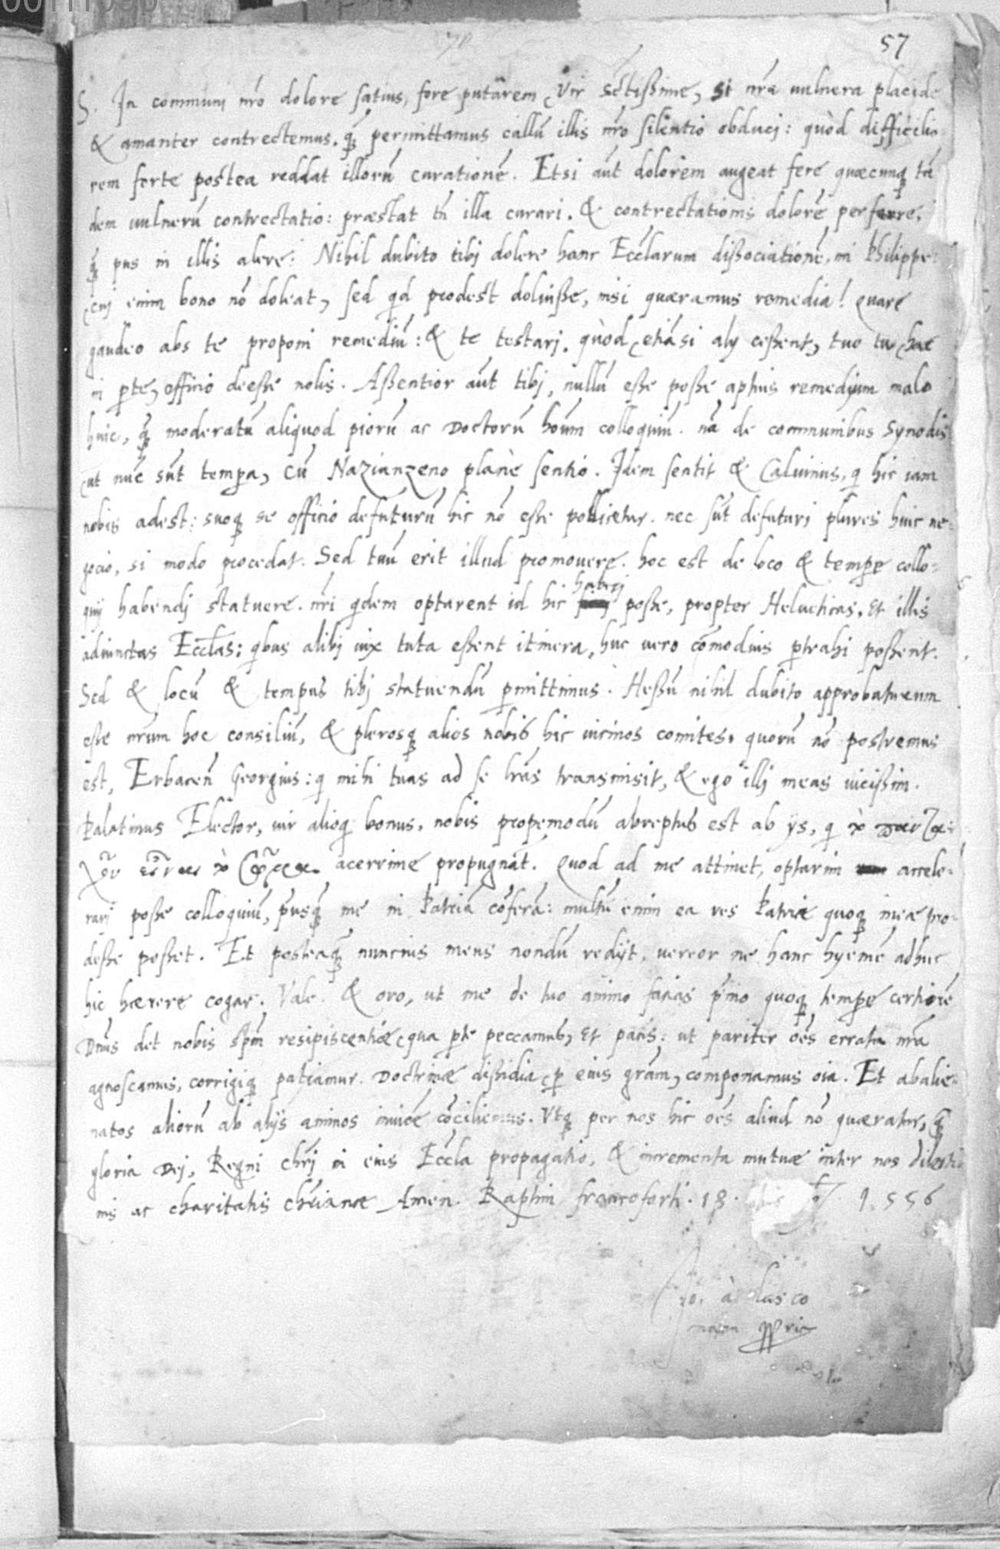 57
S. In communi nr̃o dolore satius, fore putârem Vir sctissime, si nr̃a vulnera placide
& amanter contrectemus. q̃ permittamus callũ illis nr̃o silentio obducj: quòd difficilio-
rem forte postea reddat illorũ curationẽ. Etsi aũt dolorem augeat fere quæcunq tã
dem vulnerũ contrectatio: præstat tñ illa curari. & contrectationis dolorẽ perferre,
q̃ pus in illis alere: Nihil dubito tibj dolere hanc Ecclarum dissociationẽ, mi Philippe:
cuj enim bono nõ doleat, sed qd prodest doluisse, nisi quæramus remedia! Quare
gaudeo abs te proponi remediũ: & te testarj. quòd etiãsi alij cessent, tuo tu hac
in pte, officio deesse nolis. Assentior aũt tibj, nullũ esse posse aptius remedium malo
huic, q̃ moderatũ aliquod piorũ ac Doctorũ hoũm colloquiũ. nã de communibus Synodis
ut nũc sũt tempa, cũ Nazianzeno planè sentio. Idem sentit & Calvinus, q hic iam
nobis adest: suoq se officio defuturũ hic nõ esse pollicetur. nec sũt defuturj plures huic ne-
gocio, si modo procedat. Sed tuũ erit illud promovere. hoc est de loco & tempe collo-
quij habendj statuere. nr̃i qdem optarent id hic haberj posse, propter Helveticas, Et illis
adiunctas Ecclas: qbus alibj vix tuta essent itinera, huc vero cõmodius ptrahi possent.
Sed & locũ & tempus tibj statuendũ pmittimus. Hessũ nihil dubito approbaturum
esse nr̃um hoc consiliũ, & plerosq alios nobis hic vicinos comites, quorũ nõ postremus
est, Erbaceñ Georgius: q mihi tuas ad se lr̃as transmisit, & ego illj meas vicissim.
Palatinus Elector, vir alioq bonus, nobis propemodũ abreptus est ab ijs, q
acerrime propugnãt. Quod ad me attinet, optarim accele-
rarj posse colloquiũ, pusq̃ me in Patriã cõferã: multũ enim ea res Patriæ quoq meæ pro-
desse posset. Et posteaq̃ nuncius meus nondũ redijt, vereor ne hanc hyemẽ adhuc
hic hærere cogar. Vale. & oro, ut me de tuo animo facias pmo quoq tempe certiorẽ
Dñus det nobis spm resipiscentiæ, qua pte peccamus, Et paris: ut pariter oẽs errata nr̃a
agnoscamus, corrigiq patiamur. Doctrinæ dissidia, p eius gram, componamus oia. Et abalie-
natos aliorũ ab alijs animos invicẽ cõciliemus. Utq per nos hic oẽs aliud nõ quæratur, q̃
gloria Dej, Regni chr̃j in eius Eccla propagatio, & incrementa mutuæ inter nos dilectio
nis ac charitatis chr̃ianæ Amen. Raptim francoforti. 18. 1556
Jo. à Lasco